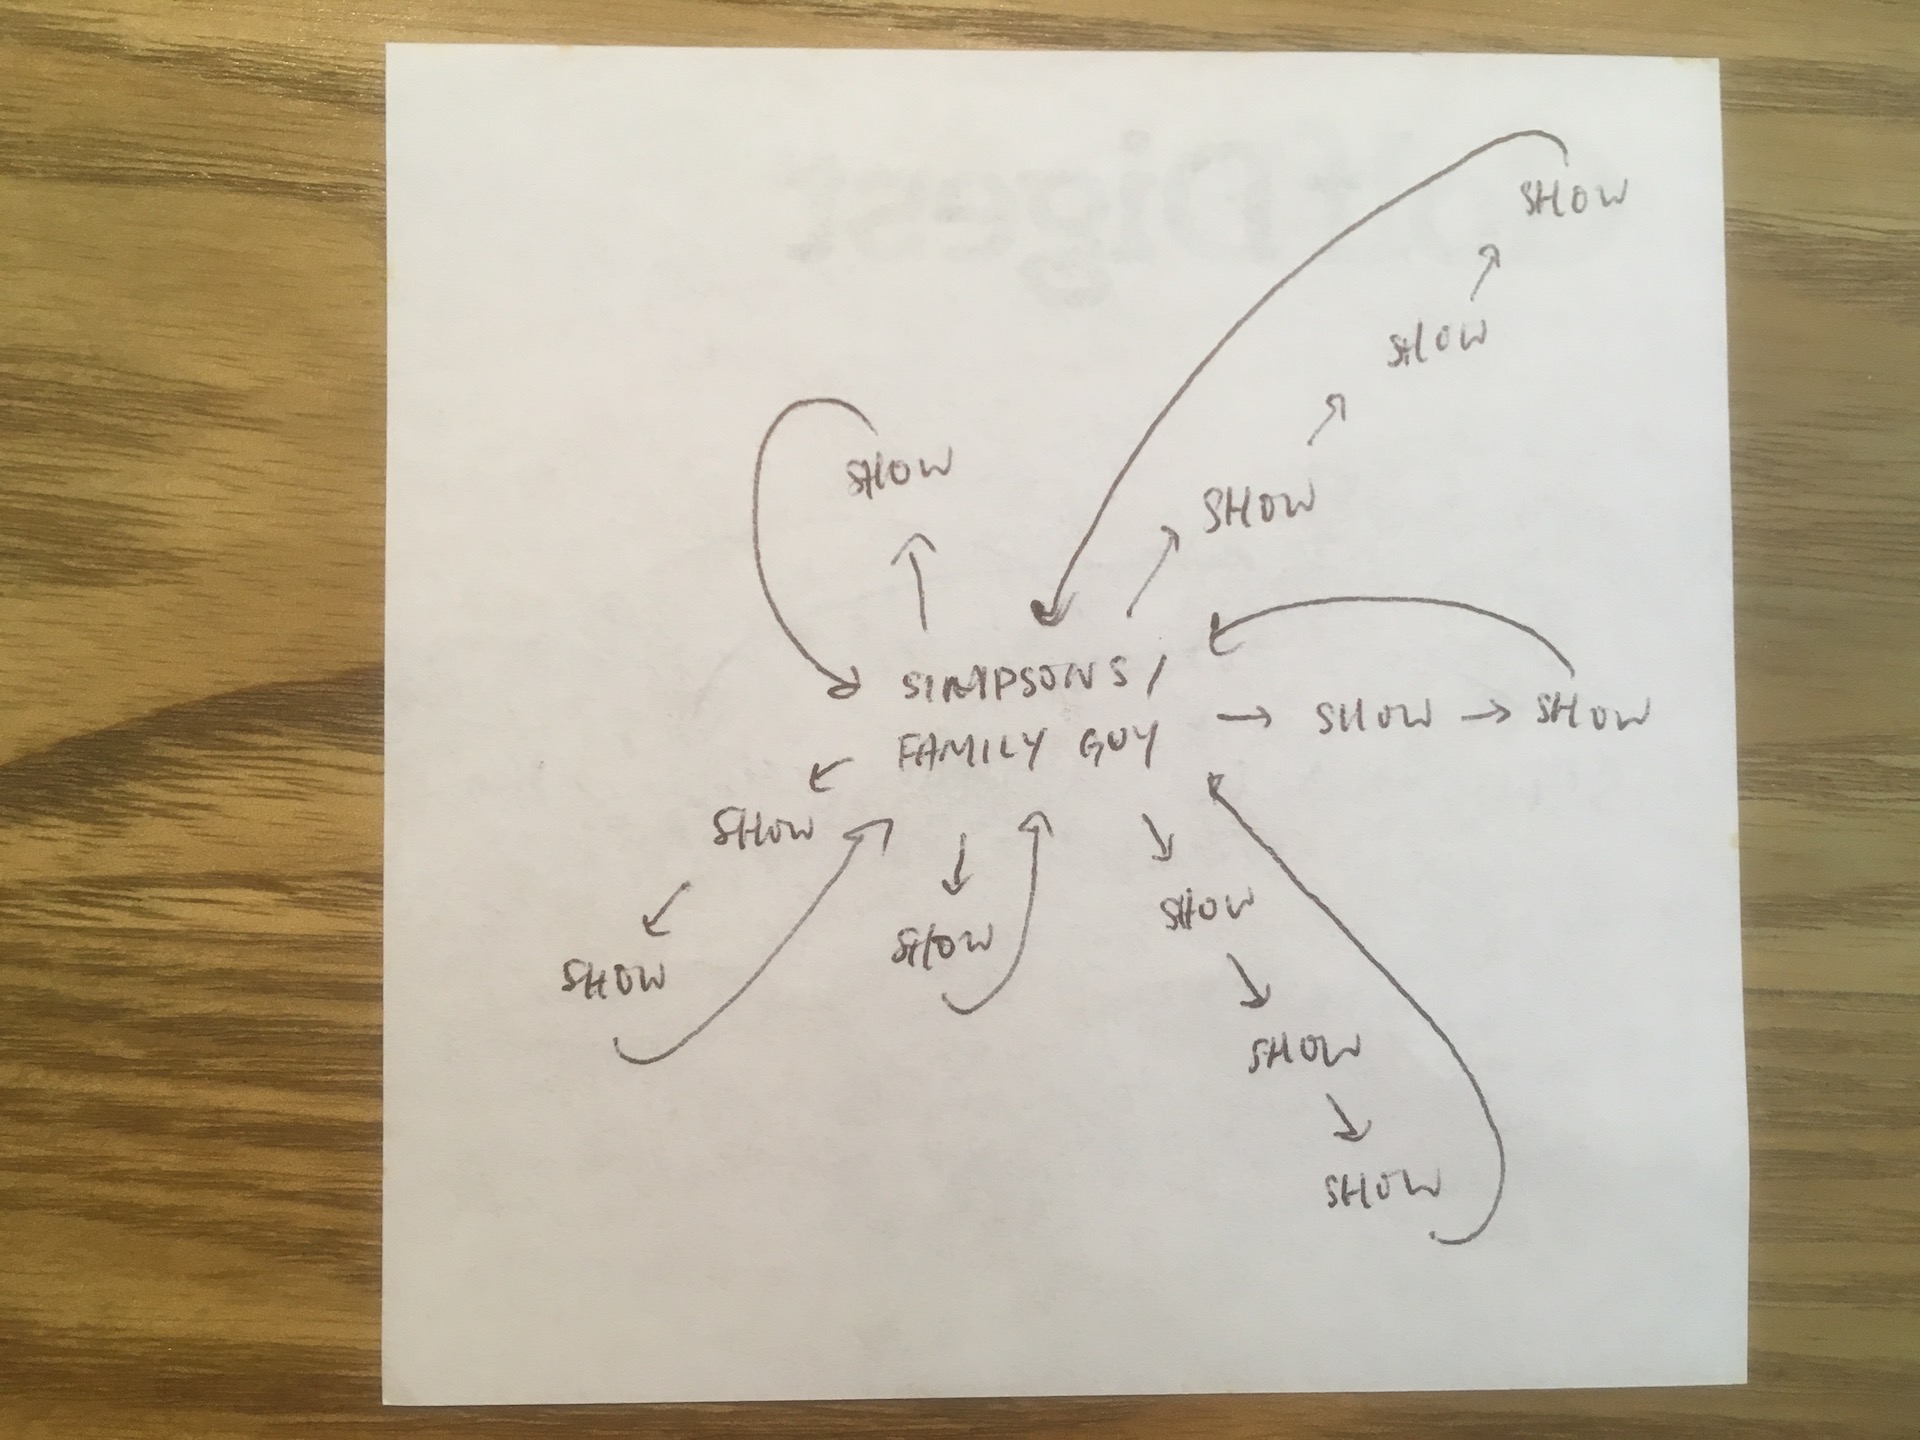 SHOW
SHOW
SHOW
SHOW
SIMPSONS/
FAMILY GUY
SHOW
SHOW
SHOW
SHOW
SHOW
SHOW
SHOW
SHOW
Digest